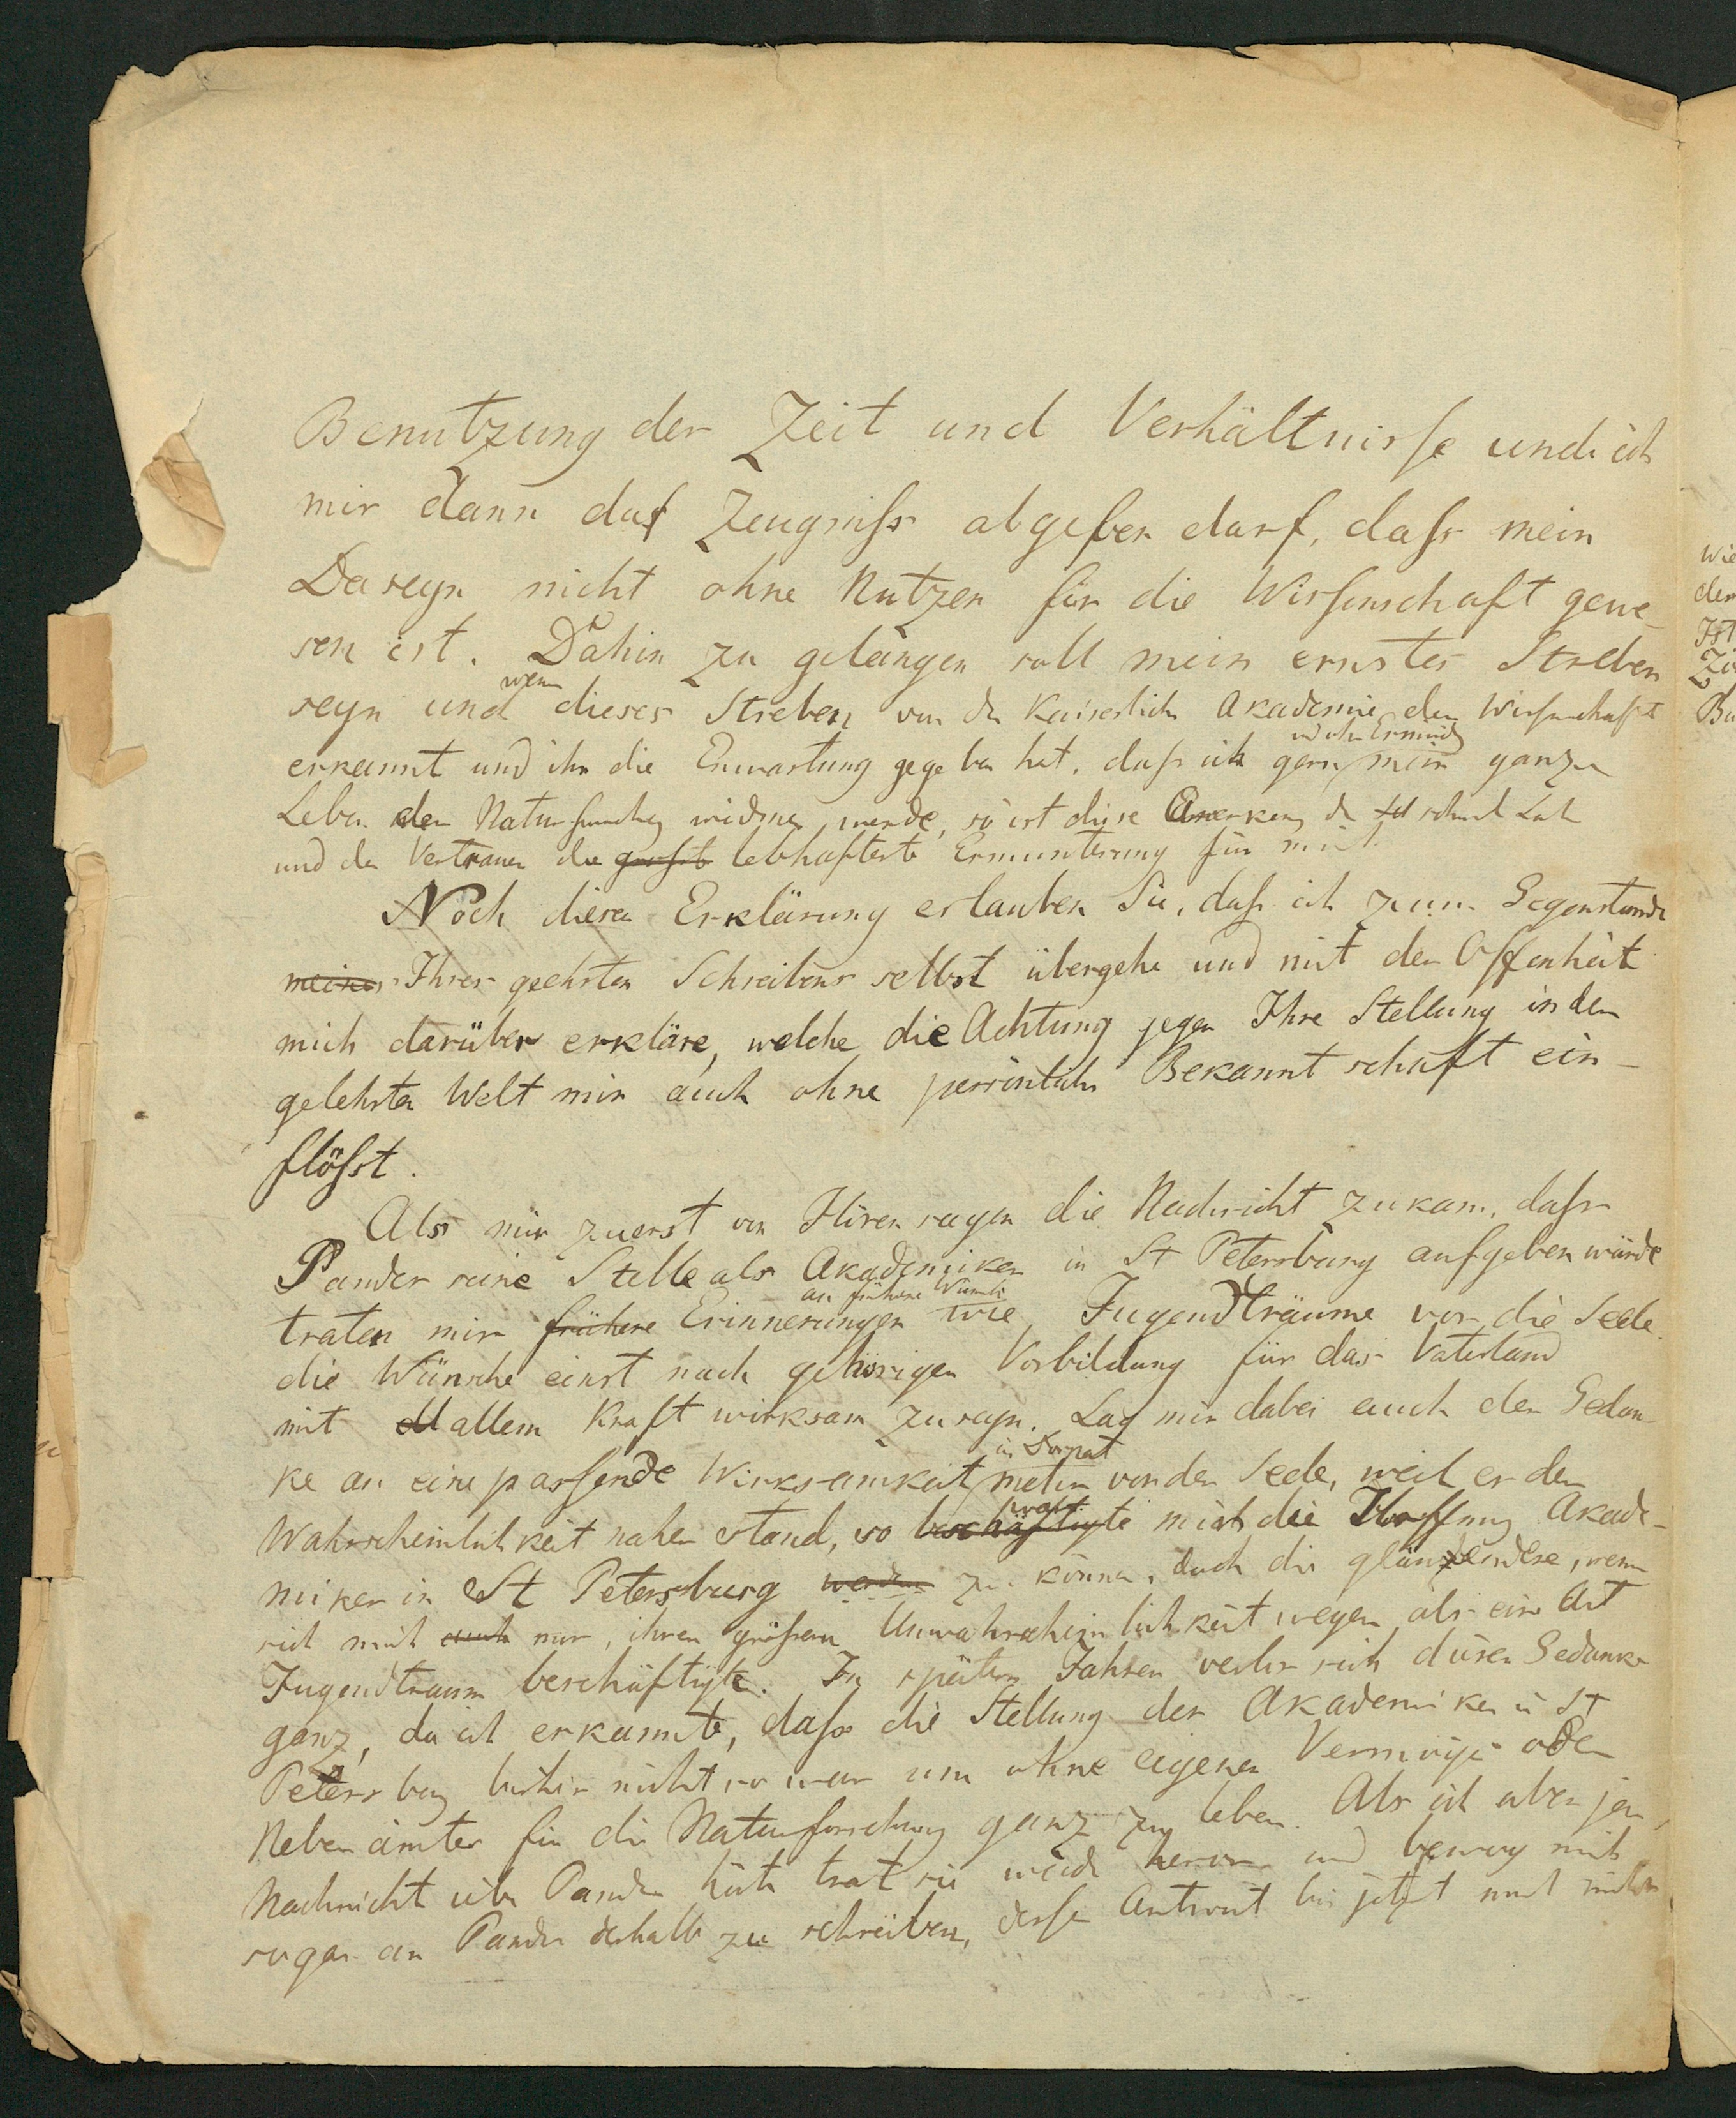 Benutzung der Zeit und Verhältnisse und ich
mir dann das Zeugniss abgeben darf, dass mein
Daseyn nicht ohne Nutzen für die Wissenschaft gewe-
sen ist. Dahin zu gelangen soll mein ernstes Streben
seyn und wenn dieses Streben von der Kaiserlichen Akademie der Wissenschaft
erkannt und ihr die Erwartung gegeben hat, dass ich gern mein ganzes
Leben der Naturforschung widmen werde, so ist diese
und das Vertrauen die grösste lebhafteste Ermunterung für mich.
Nach dieser Erklärung erlauben Sie, dass ich zum Gegenstande
meines Ihres geehrten Schreibens selbst übergehe und mit der Offenheit
mich darüber erkläre, welche die Achtung gegen Ihre Stellung in der
gelehrten Welt mir auch ohne persönliche Bekanntschaft ein-
flösst.
Als mir zuerst von Hörensagen die Nachricht zukam, dass
Pander seine Stelle als Akademiker in St Petersburg aufgeben würde
traten mir frühere Erinnerungen an frühere Wünsche wie Jugendträume vor die Seele.
die Wünsche einst nach gehörigen Vorbildung für das Vaterland
mit allem Kraft wirksam zu seyn. Lag mir dabei auch der Gedan-
ke an eine passende Wirksamkeit in Dorpat mehr vor der Seele, weil er der
Wahrscheinlichkeit näher stand, so beschäftigte mich die Hoffnung Akade-
miker in St Petersburg werden zu können, doch die glänzendere, wenn
sich mich auch nur, ihrer grössern Unwahrscheinlichkeit wegen als eine Art
Jugendtraum beschäftigte. In spätern Jahren verlor sich dieser Gedanke
ganz, da ich erkannte, dass die Stellung der Akademiker in St
Petersburg bisher nicht so war um ohne eigenes Vermögen oder
Nebenämter für die Naturforschung ganz zu leben. Als ich aber jene
Nachricht über Pander hörte trat sie wieder hervor und bewog mich
sogar an Pander deshalb zu schreiben, dessen Antwort bis jetzt noch nicht
wie
der
Ist
Zu